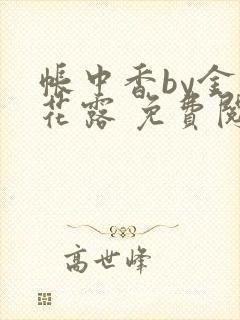 帳中香by金
花露 免費閱
高世峰